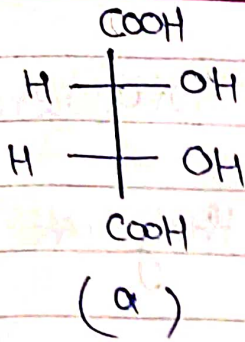 COOH
H OH
H OH
COOH
(a)